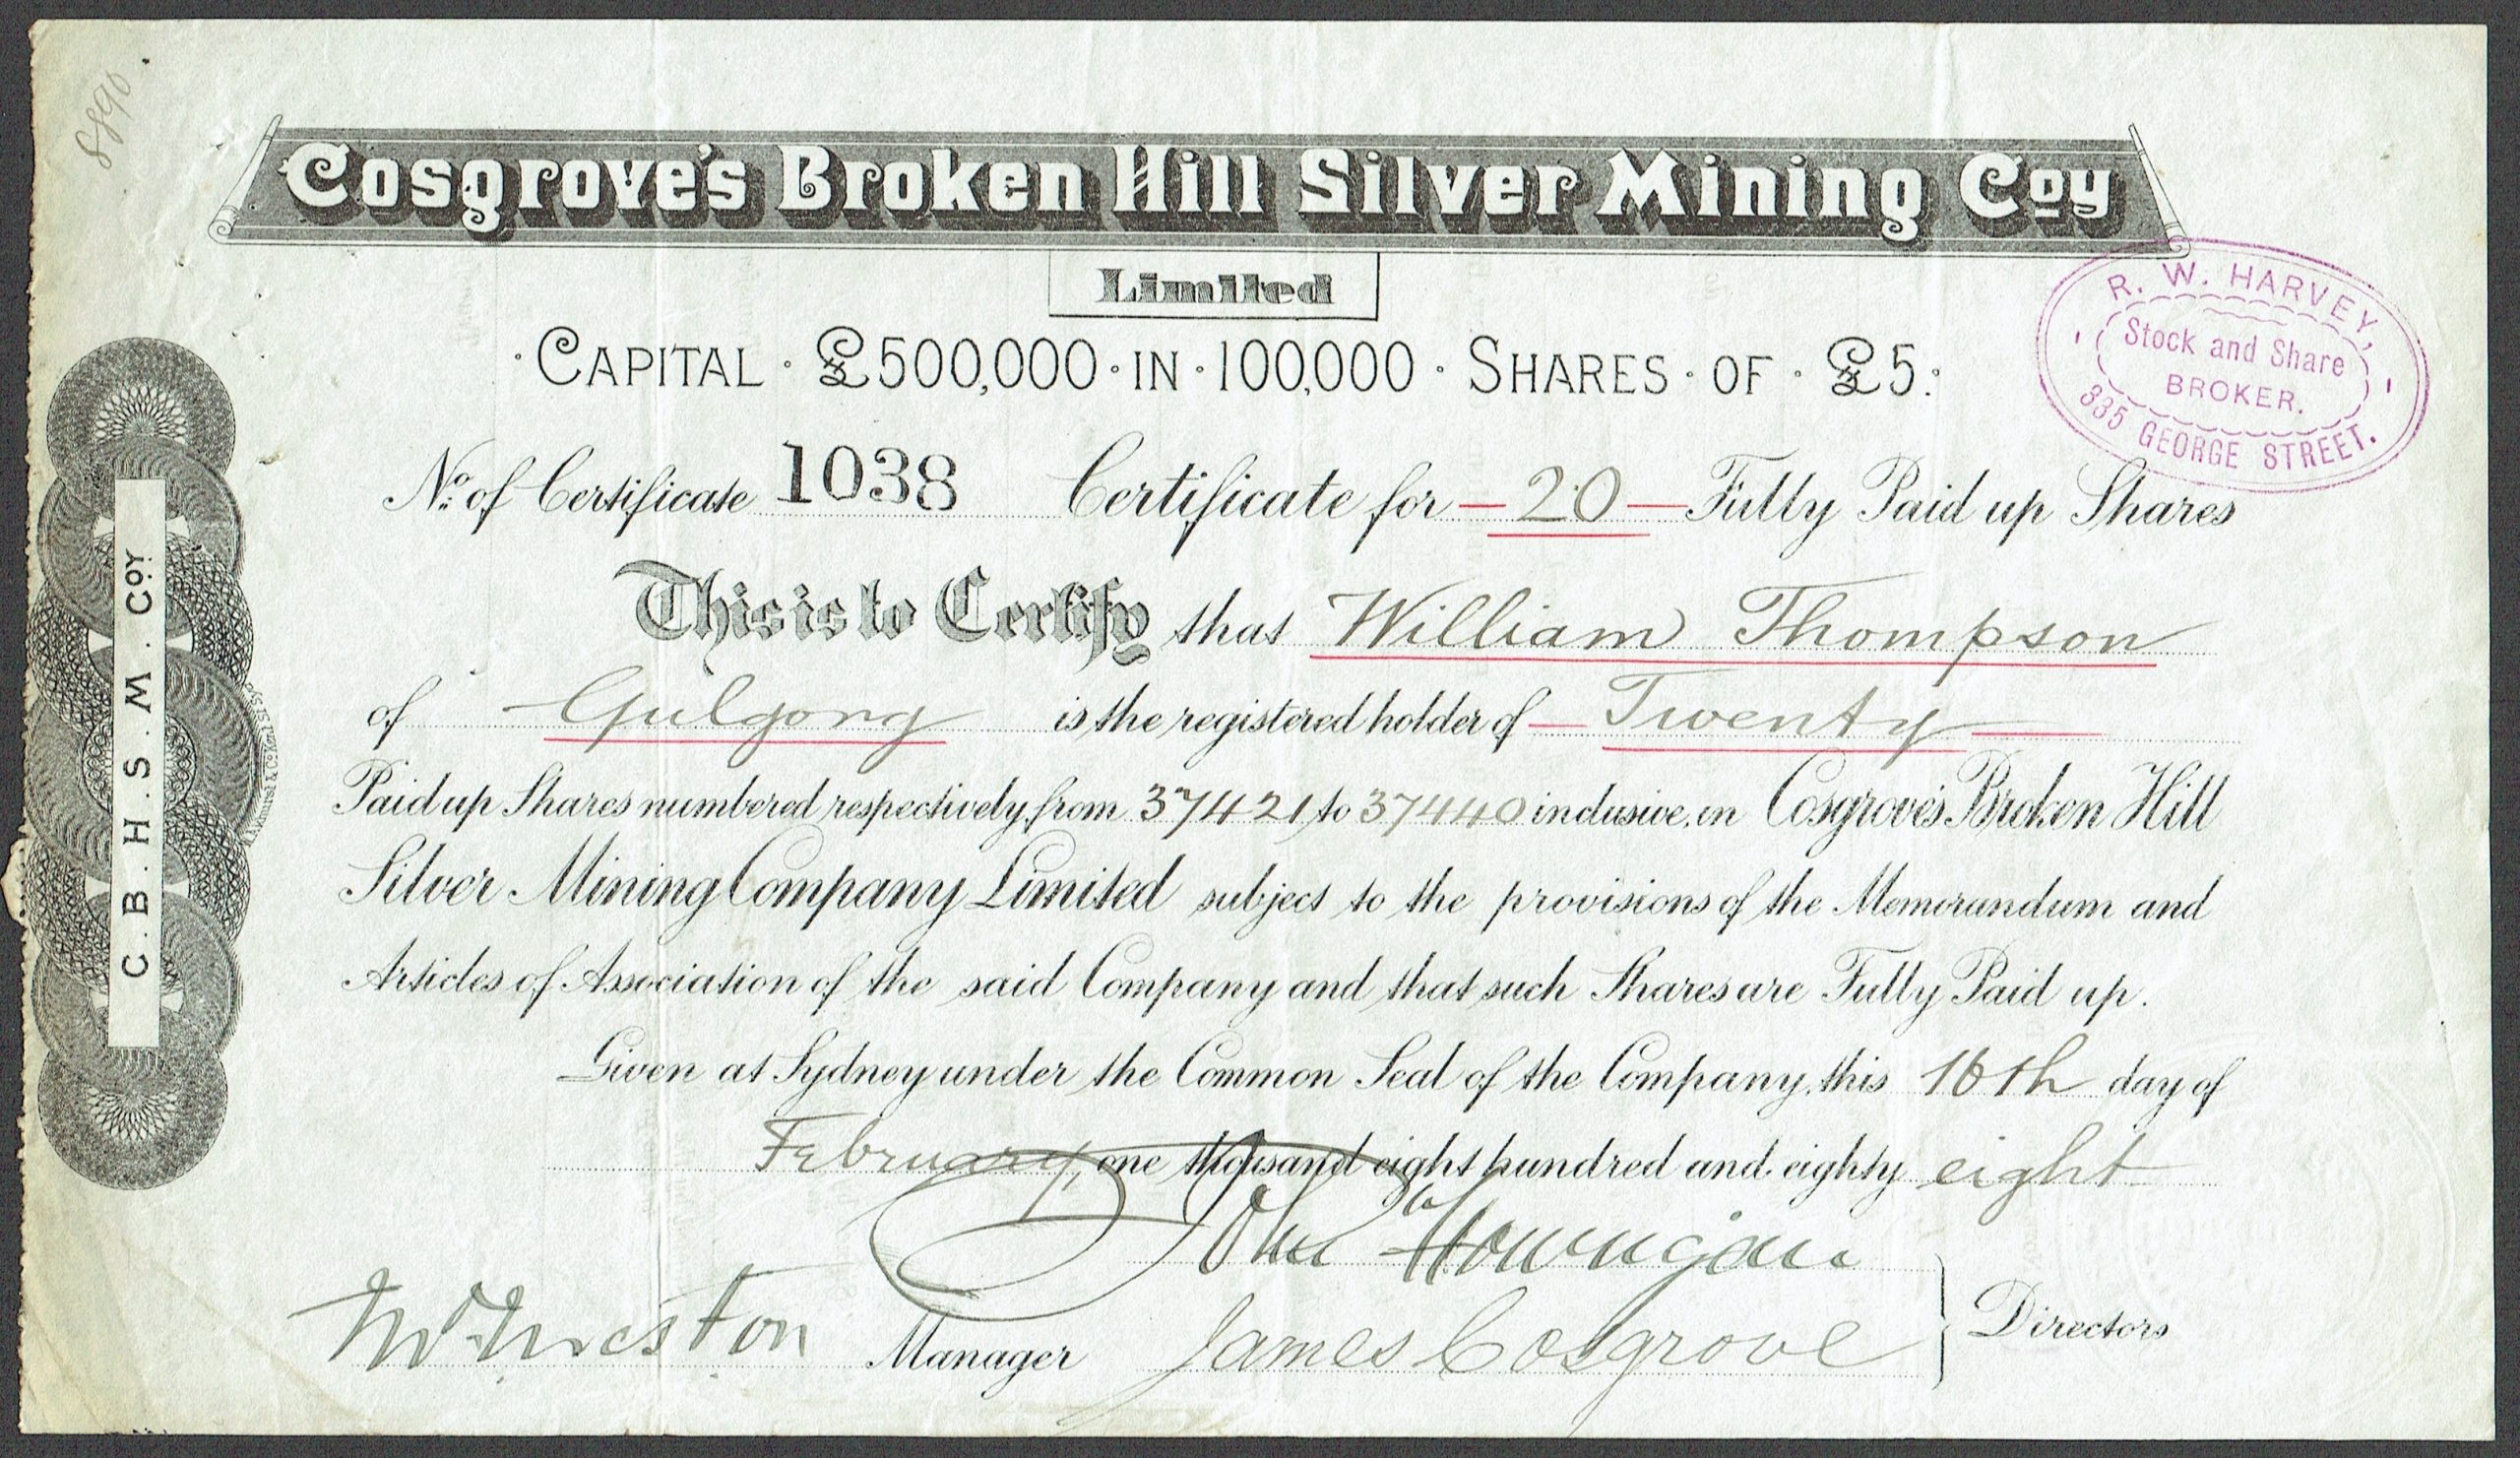 8890
Cosgrove's Broken Hill Silver Mining Coy
Limited
CAPITAL · £500,000 · IN · 100,000 · SHARES · OF · £5.
R. W. HARVEY,
Stock and Share
BROKER.
335 GEORGE STREET.
No. of Certificate 1038 Certificate for — 20 — Fully Paid up Shares
This is to Certify that William Thompson
of Gulgong is the registered holder of — Twenty —
Paid up Shares numbered respectively from 37421 to 37440 inclusive in Cosgrove's Broken Hill
Silver Mining Company Limited subject to the provisions of the Memorandum and
Articles of Association of the said Company and that such Shares are Fully Paid up.
Given at Sydney under the Common Seal of the Company, this 16th day of
February, one thousand eight hundred and eighty eight
John
Manager James Cosgrove Directors
C. B. H. S. M. COY